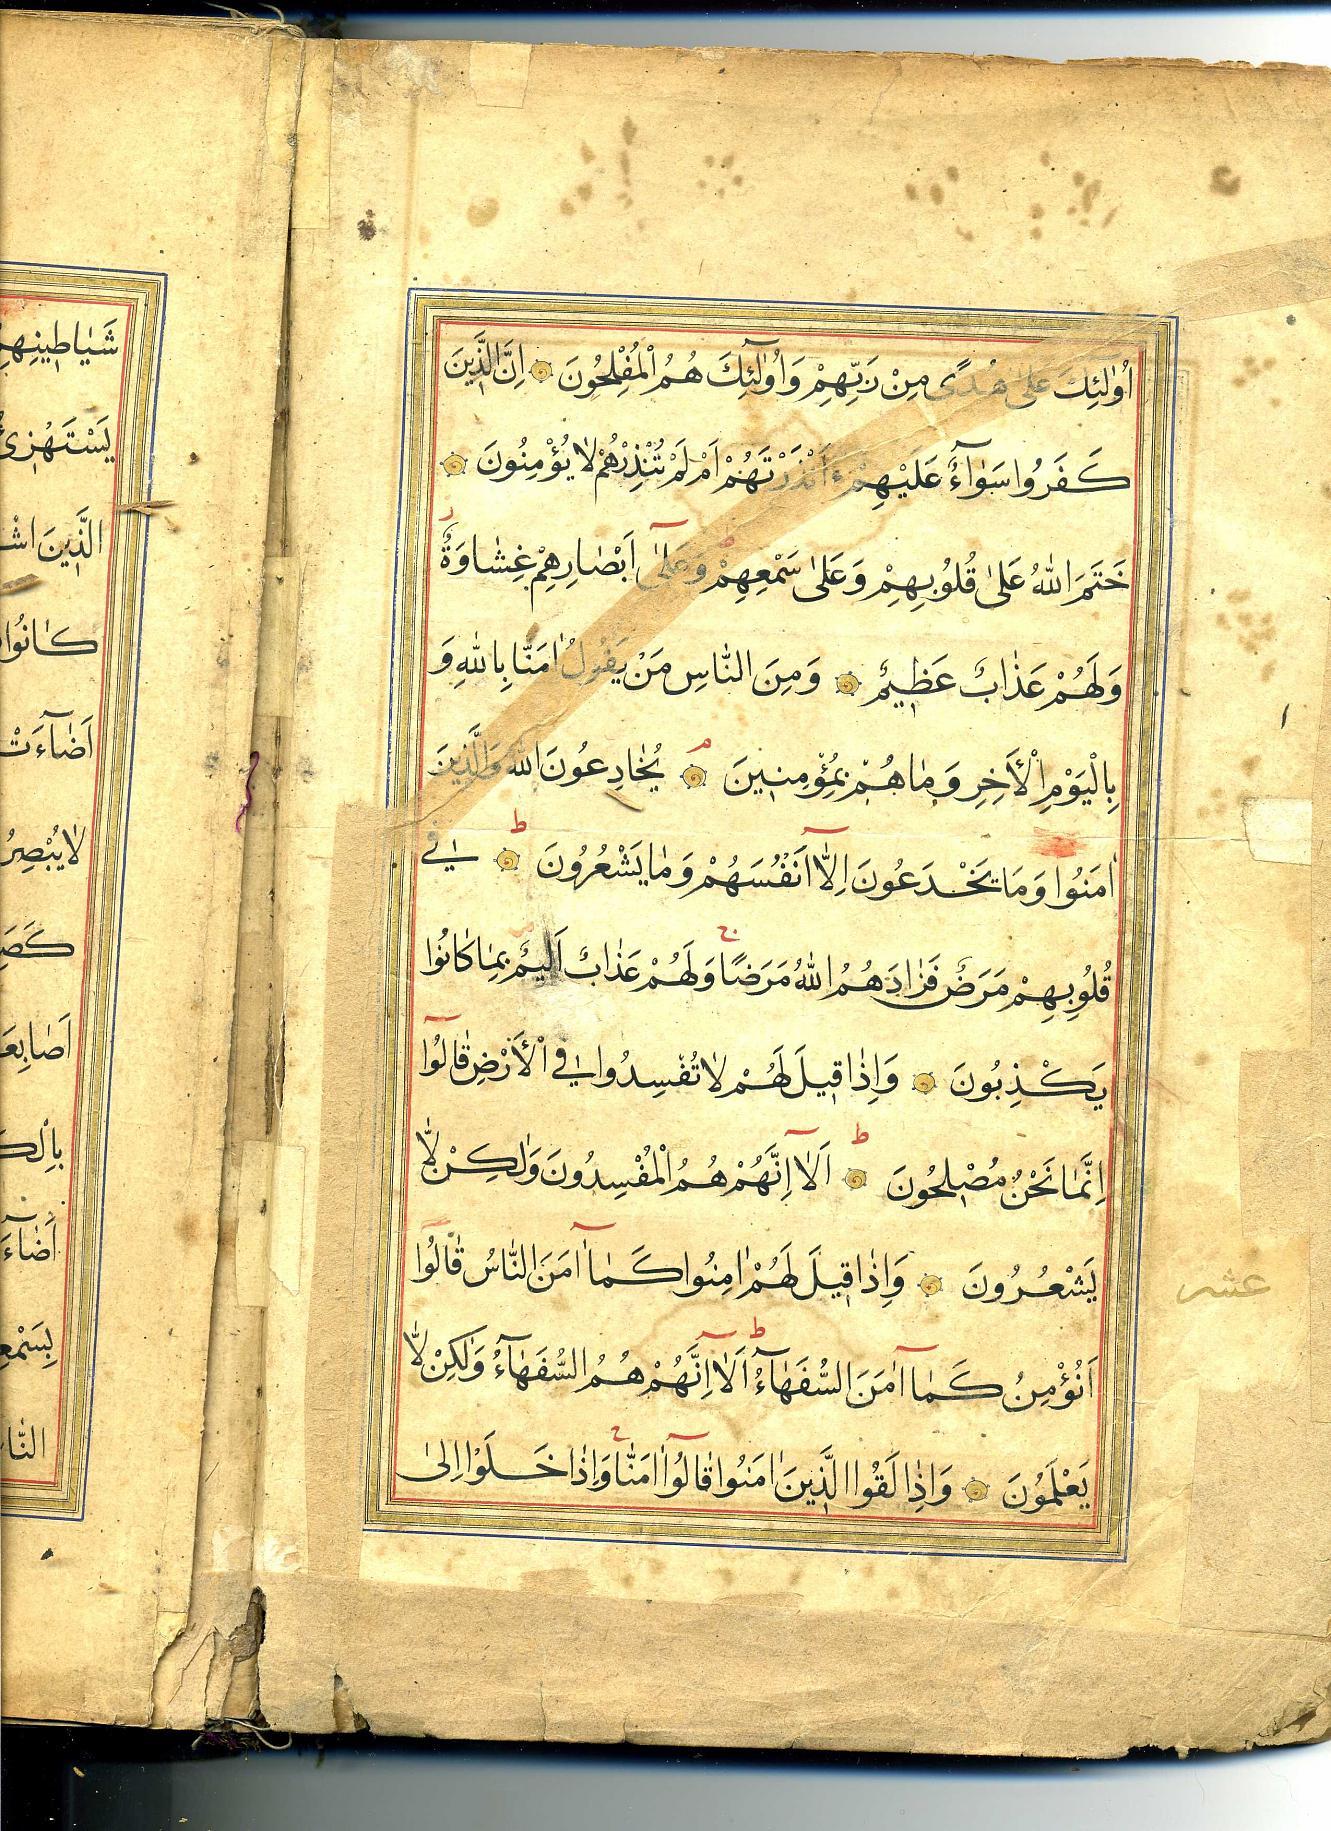 اُولٰئِكَ عَلٰى هُدًى مِنْ رَبِّهِمْ وَاُولٰئِكَ هُمُ الْمُفْلِحُونَ اِنَّ الَّذِينَ
كَفَرُوا سَوَاءٌ عَلَيْهِمْ ءَاَنْذَرْتَهُمْ اَمْ لَمْ تُنْذِرْهُمْ لَا يُؤْمِنُونَ
خَتَمَ اللّٰهُ عَلٰى قُلُوبِهِمْ وَعَلٰى سَمْعِهِمْ ط وَعَلٰى اَبْصَارِهِمْ غِشَاوَةٌ ز
وَلَهُمْ عَذَابٌ عَظِيمٌ وَمِنَ النَّاسِ مَنْ يَقُولُ اٰمَنَّا بِاللّٰهِ وَ
بِالْيَوْمِ الْاٰخِرِ وَمَا هُمْ بِمُؤْمِنِينَ م يُخَادِعُونَ اللّٰهَ وَالَّذِينَ
اٰمَنُوا وَمَا يَخْدَعُونَ اِلَّا اَنْفُسَهُمْ وَمَا يَشْعُرُونَ ط فِي
قُلُوبِهِمْ مَرَضٌ فَزَادَهُمُ اللّٰهُ مَرَضًا ج وَلَهُمْ عَذَابٌ اَلِيمٌ بِمَا كَانُوا
يَكْذِبُونَ وَاِذَا قِيلَ لَهُمْ لَا تُفْسِدُوا فِي الْاَرْضِ قَالُوا
اِنَّمَا نَحْنُ مُصْلِحُونَ ط اَلَا اِنَّهُمْ هُمُ الْمُفْسِدُونَ وَلٰكِنْ لَّا
يَشْعُرُونَ وَاِذَا قِيلَ لَهُمْ اٰمِنُوا كَمَا اٰمَنَ النَّاسُ قَالُوا
اَنُؤْمِنُ كَمَا اٰمَنَ السُّفَهَاءُ ط اَلَا اِنَّهُمْ هُمُ السُّفَهَاءُ وَلٰكِنْ لَّا
يَعْلَمُونَ وَاِذَا لَقُوا الَّذِينَ اٰمَنُوا قَالُوا اٰمَنَّا ح وَاِذَا خَلَوْا اِلٰى
عشر
١
شَيَاطِينِهِمْ
يَسْتَهْزِئُ
الَّذِينَ اشْ
كَانُوا
اَضَاءَتْ
لَا يُبْصِرُ
كَصَ
اَصَابِعَ
بِالْكَ
اَضَاءَ
بِسَمْعِ
النَّا